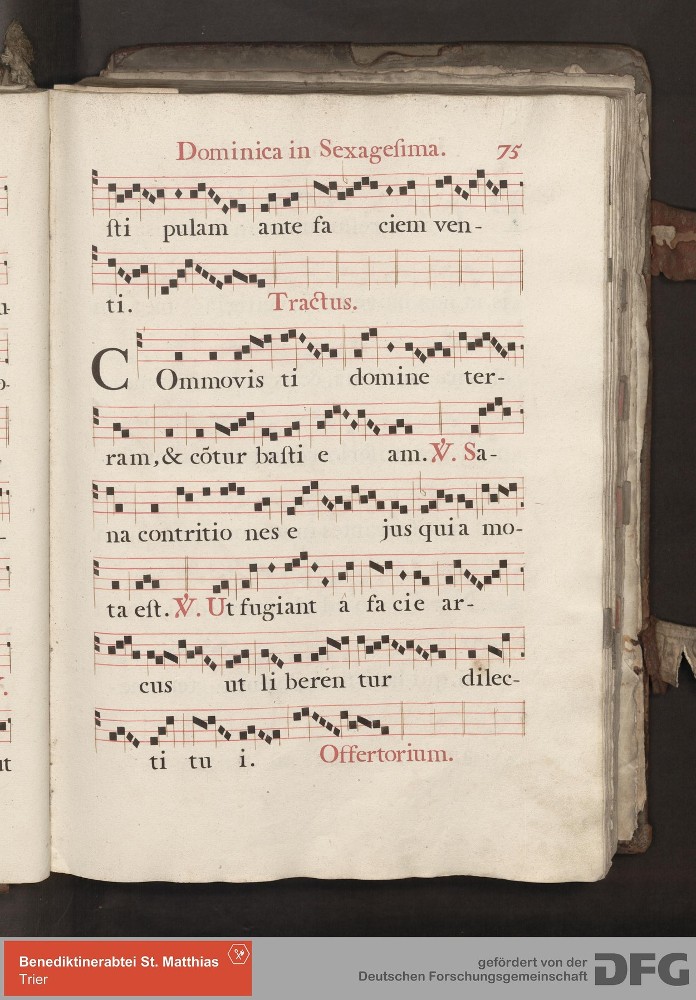 Dominica in Sexageſima. 75
ſti pulam ante fa ciem ven-
ti. Tractus.
COmmovis ti domine ter-
ram, & cõtur baſti e am. ℣. Sa-
na contritio nes e jus quia mo-
ta eſt. ℣. Ut fugiant â fa cie ar-
cus ut li beren tur dilec-
ti tu i. Offertorium.
Benediktinerabtei St. Matthias
Trier
gefördert von der
Deutschen Forschungsgemeinschaft
DFG